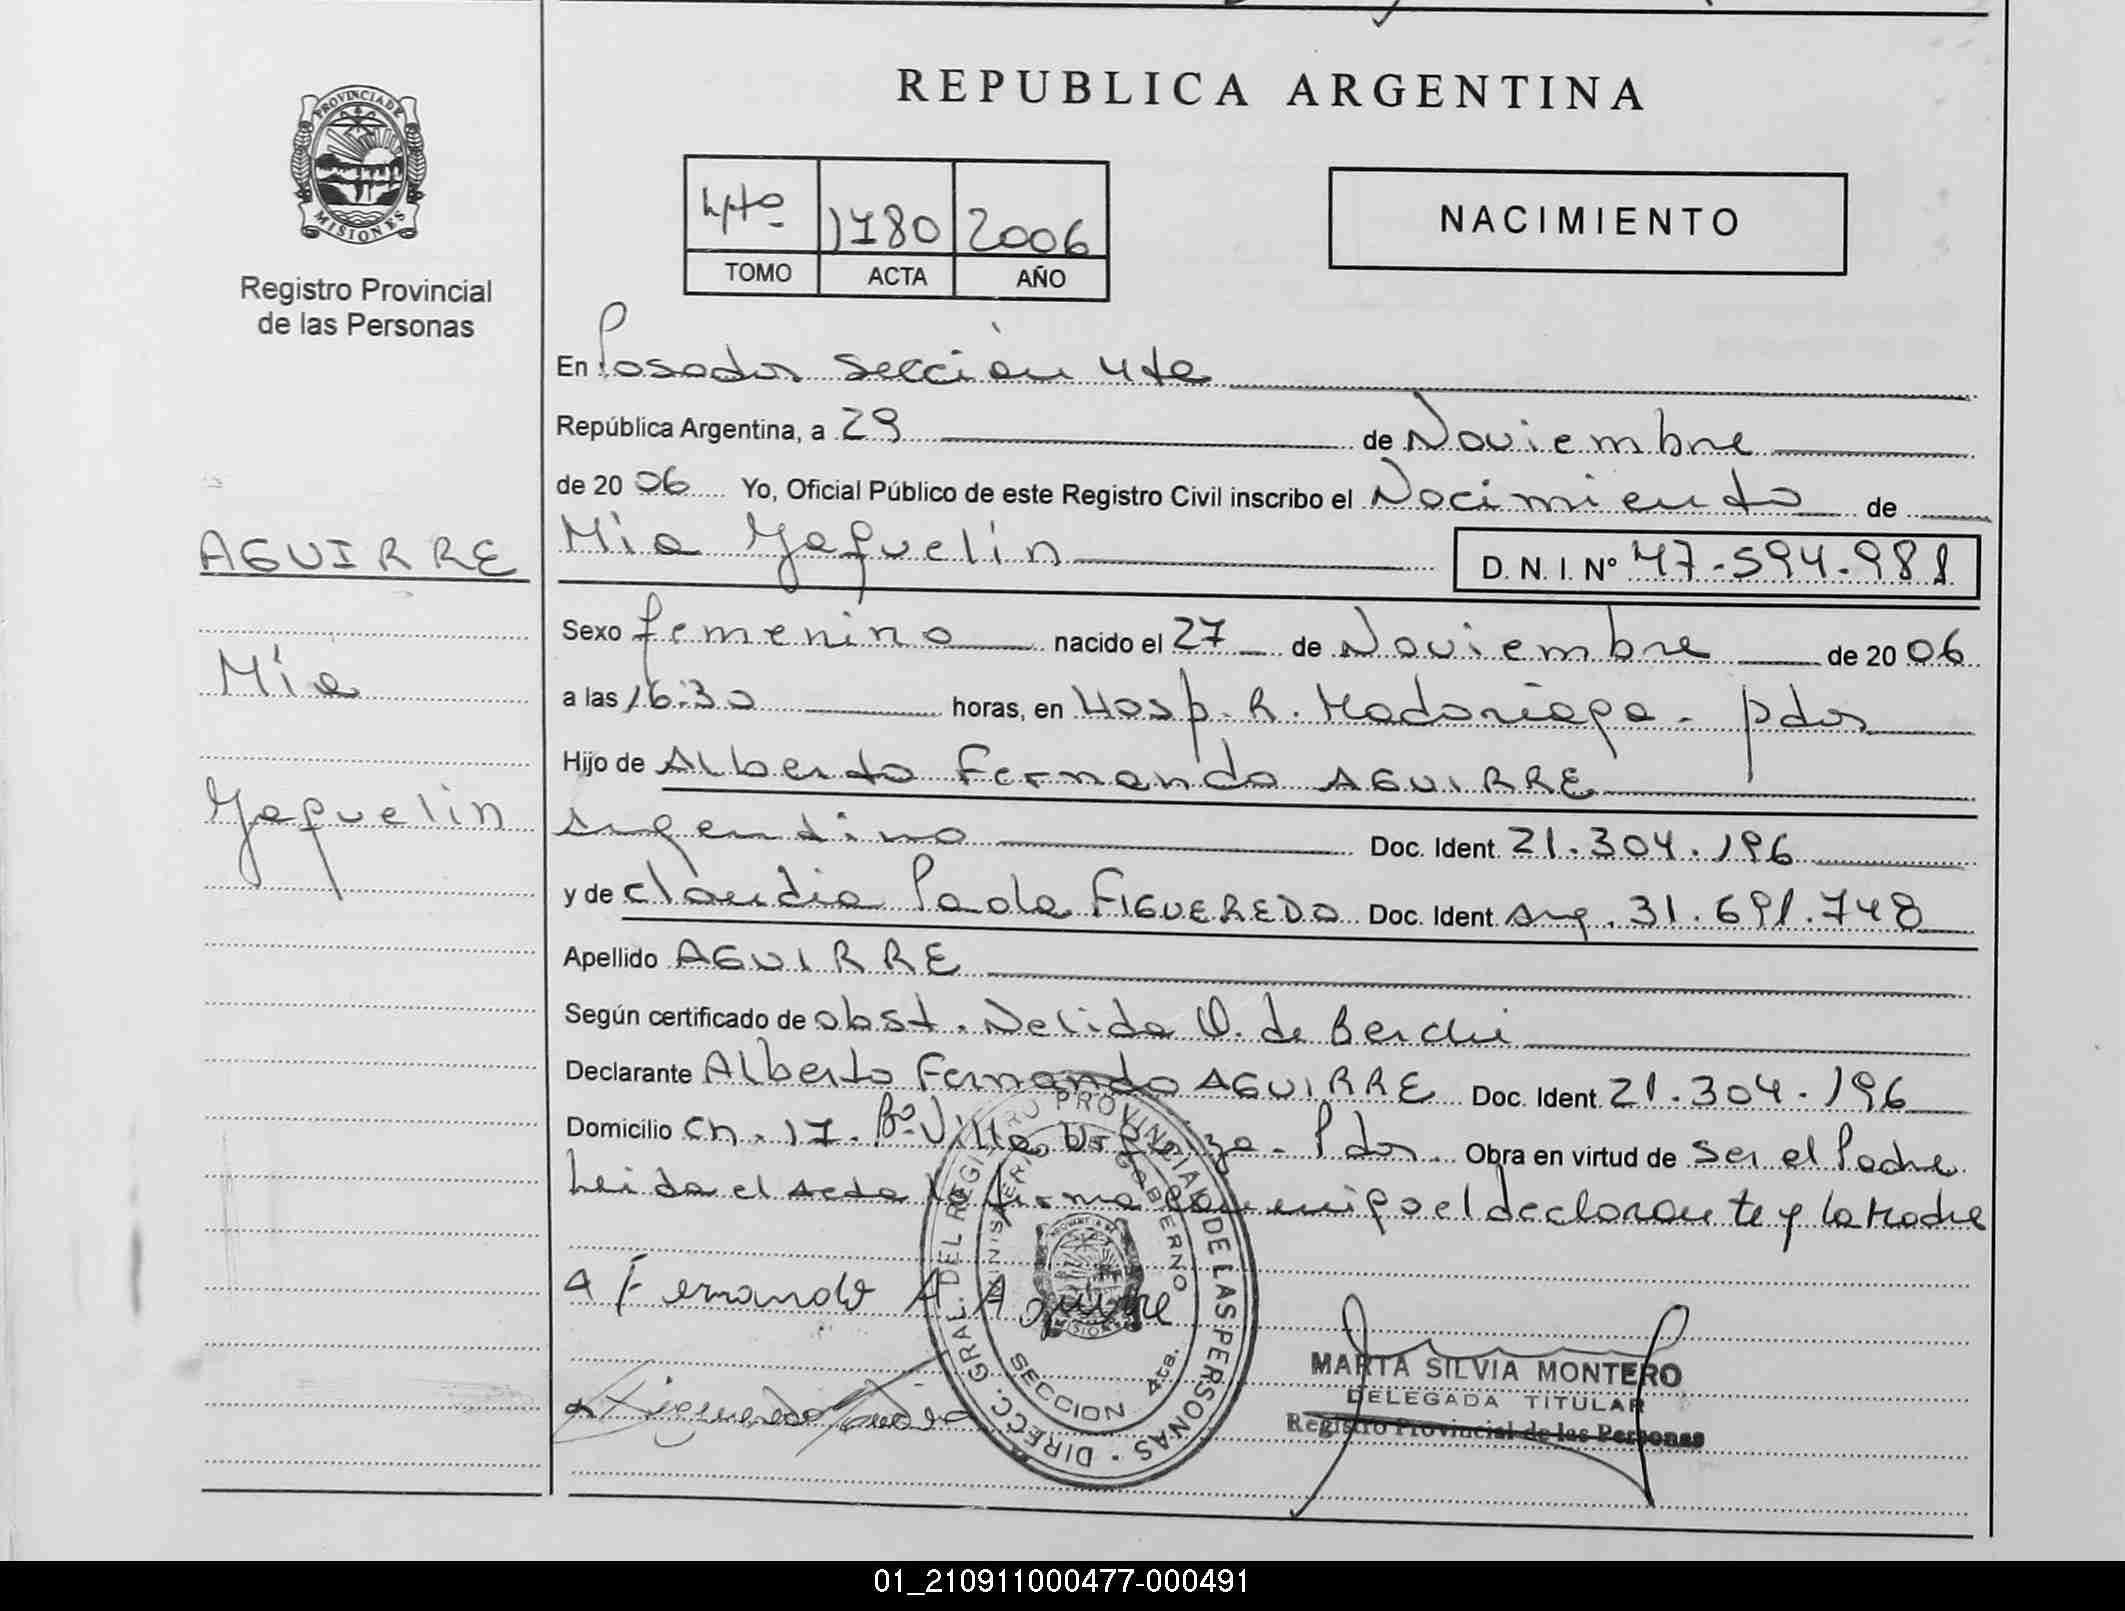 REPUBLICA ARGENTINA
PROVINCIA DE MISIONES
Registro Provincial
de las Personas
4to 1780 2006
TOMO ACTA AÑO
NACIMIENTO
En Posadas Sección 4ta
República Argentina, a 29 de Noviembre
de 20 06 Yo, Oficial Público de este Registro Civil inscribo el Nacimiento de
Mía Yaquelin D. N. I. Nº 47.594.981
AGUIRRE
Mía
Yaquelin
Sexo femenino nacido el 27 de Noviembre de 20 06
a las 16:30 horas, en Hosp. R. Madariaga - Pdas
Hijo de Alberto Fernando AGUIRRE
argentino Doc. Ident. 21.304.196
y de Claudia Paola FIGUEREDO Doc. Ident. Arg. 31.691.748
Apellido AGUIRRE
Según certificado de obst. Nelida O. de Berchi
Declarante Alberto Fernando AGUIRRE Doc. Ident. 21.304.196
Domicilio Ch. 17. Bº Villa Urquiza - Pdas. Obra en virtud de ser el Padre
Leida el acta la firma conmigo el declarante y la Madre
Fernando A Aguirre
Figueredo Paola
DIRECC. GRAL. DEL REGISTRO PROVINCIAL DE LAS PERSONAS
MINISTERIO DE GOBIERNO
MISIONES
SECCION 4ta.
MARTA SILVIA MONTERO
DELEGADA TITULAR
Registro Provincial de las Personas
01_210911000477-000491